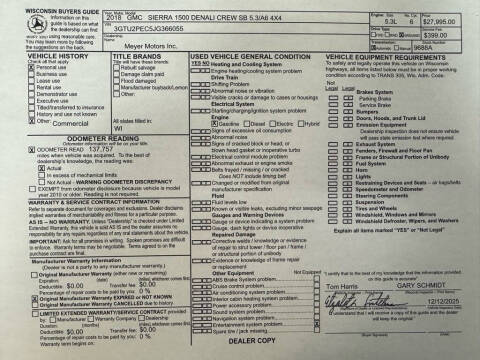 WISCONSIN BUYERS GUIDE
Information on this guide is based on what the dealership can find using reasonable care. You may learn more by following the suggestions on this document.
Year, Make, Model
2018 GMC SIERRA 1500 DENALI CREW SB 5.3/A6 4X4
3GTU2PEC5JG366055
Dealership Name
Meyer Motors Inc.
Engine, Size
5.3L
Cyl.
6
Price
$27,995.00
Service Fee
$399.00
Stock Number
9688A
VEHICLE HISTORY
Check all that apply
X Personal use
Business use
Lease use
Rental use
Demonstrator use
Executive use
Titled/transferred to insurance
History and use not known
X Other: Commercial
TITLE BRANDS
Title will have these brands
Rebuilt salvage
Damage claim paid
Flood damaged
Manufacturer buyback/Lemon
Other:
All states titled in:
WI
ODOMETER READING
Odometer information will be on your title.
X ODOMETER READ 137,757
miles when vehicle was acquired. To the best of dealership's knowledge, the reading was:
X Actual
In excess of mechanical limits
Not Actual - WARNING ODOMETER DISCREPANCY
EXEMPT from odometer disclosure because vehicle is model year 2010 or older. Reading is not required.
WARRANTY & SERVICE CONTRACT INFORMATION
Refer to separate document for coverages and exclusions. Dealer disclaims implied warranties of merchantability and fitness for a particular purpose.
AS IS – NO WARRANTY.
IMPORTANT: Ask for all promises in writing. Spoken promises are difficult to enforce. Warranty terms may be negotiable. Terms agreed to on the purchase contract are final.
Manufacturer Warranty Information
(Dealer is not a party to any manufacturer warranty.)
Original Manufacturer Warranty (either new or remaining)
Expiration (date) (miles) whichever comes first.
Deductible $0.00 Transfer fee $0.00
Percentage of repair costs to be paid by you 0 %
X Original Manufacturer Warranty EXPIRED or NOT KNOWN
Original Manufacturer Warranty CANCELLED due to history
LIMITED EXTENDED WARRANTY/SERVICE CONTRACT provided by: Manufacturer Warranty Company Dealership
Duration (months) miles whichever comes first.
Deductible $0.00 Transfer fee $0.00
Percentage of repair costs to be paid by you 0 %
Warranty term begins on:
USED VEHICLE GENERAL CONDITION
YES NO Heating and Cooling System
Engine heating/cooling system problem
Drive Train
Shifting problem
Abnormal noise or vibration
Visible cracks or damage to cases or housings
Electrical System
Starting/charging/ignition system problem
Engine
X Gasoline Diesel Electric Hybrid
Signs of excessive oil consumption
Abnormal noise
Signs of cracked block or head, or blown head gasket or inoperative turbo
Electrical control module problem
Abnormal exhaust or engine smoke
Belts frayed / missing / or cracked
Does NOT include timing belt
Changed or modified from original manufacturer specification
Fluids
Fluid levels low
Known or visible leaks, excluding minor seepage
Gauges and Warning Devices
Gauge or device indicating a system problem
Gauge, dash lights or device inoperative
Repaired Damage
Corrective welds / knowledge or evidence of repair to strut tower / floor pan / frame / or structural portion of unibody
Evidence or knowledge of frame repair or replacement
Other Equipment Not Equipped
ABS Brake System problem
Cruise control problem
Air conditioning system problem
Interior cabin heating system problem
Power accessory problem
Sound system problem
Navigation system problem
Entertainment system problem
Spare tire / jack missing
VEHICLE EQUIPMENT REQUIREMENTS
To safely and legally operate this vehicle on Wisconsin highways, all items listed below must be in proper working condition according to TRANS 305, Wis. Adm. Code.
Legal Not Legal
Brakes System
Parking Brake
Service Brake
Bumpers
Doors, Hoods, and Trunk Lid
Emission Equipment
Dealership inspection does not ensure vehicle will pass state emission test where required.
Exhaust System
Fenders, Firewall and Floor Pan
Frame or Structural Portion of Unibody
Fuel System
Horn
Lights
Restraining Devices and Seats – air bags/belts
Speedometer and Odometer
Steering Components
Suspension
Tires and Wheels
Windshield, Windows and Mirrors
Windshield Defroster, Wipers, and Washers
Explain all items marked "YES" or "Not Legal"
Tom Harris
GARY SCHMIDT
12/12/2025
DEALER COPY